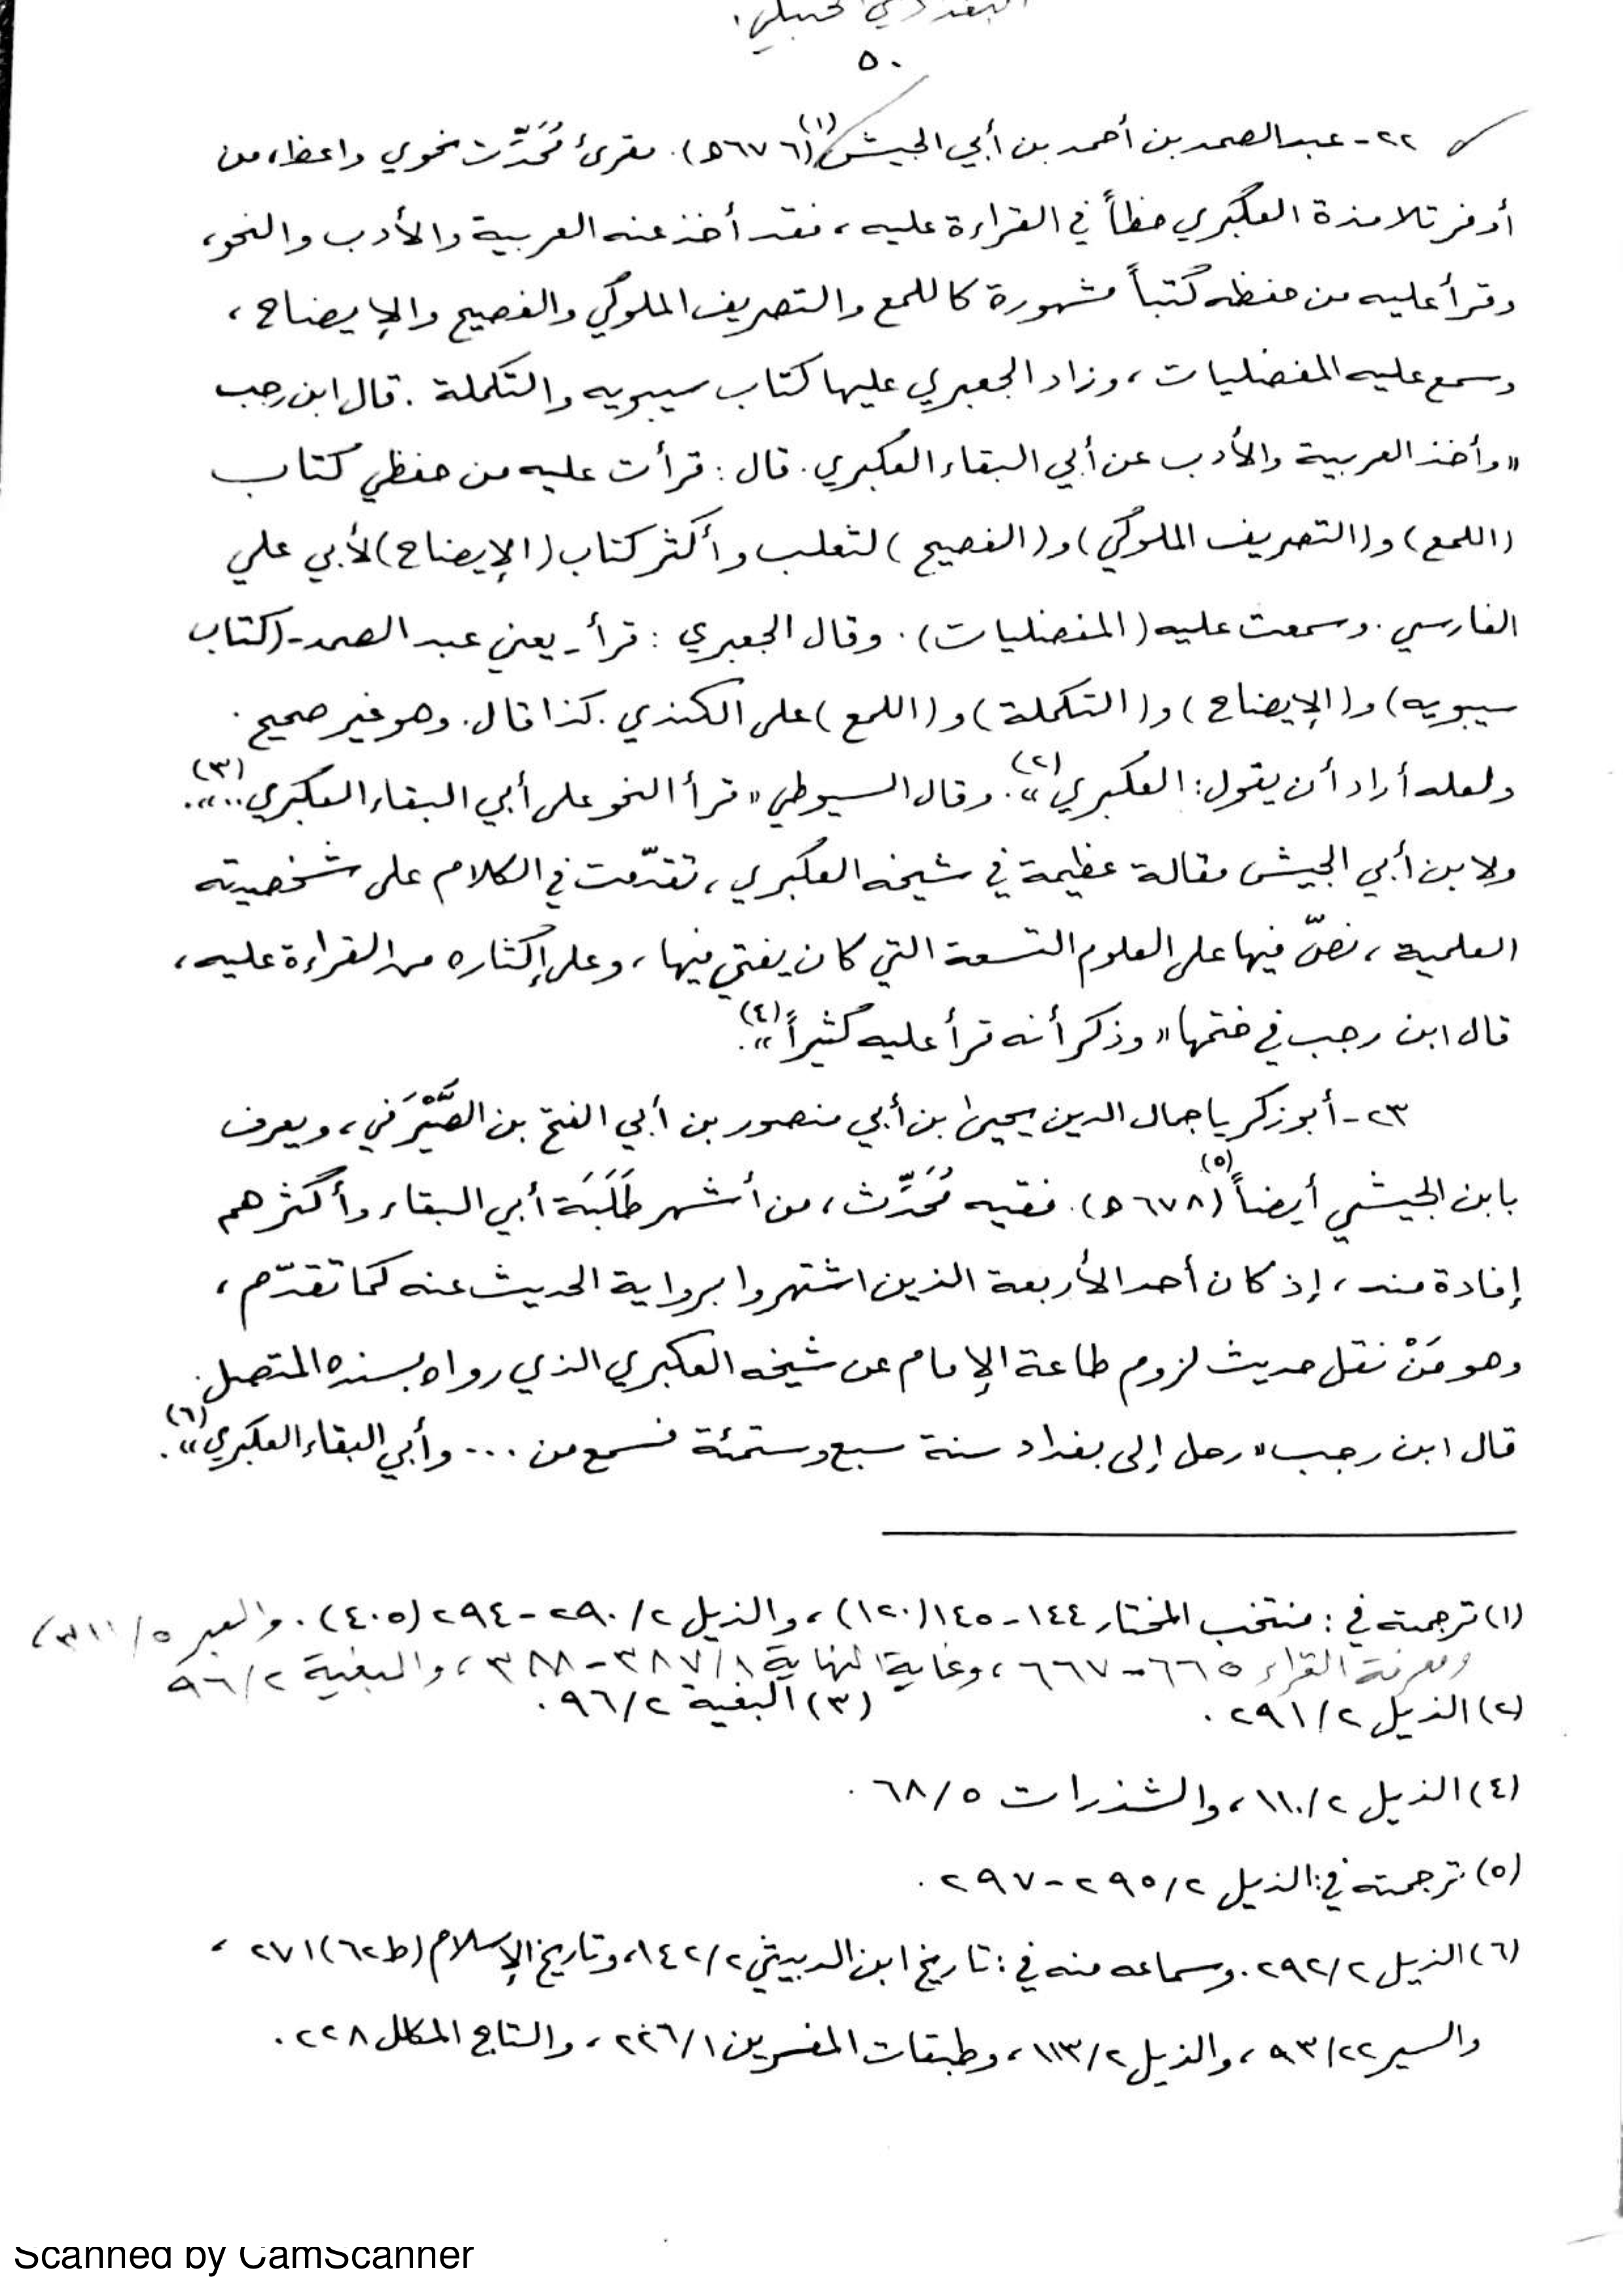 البغدادي الحنبلي.
٥٠
٢٢- عبدالصمد بن أحمد بن أبي الجيش(١) (٦٧٦ه). مقرئ مُحَدِّث نحوي واعظ، من
أوفر تلامذة العكبري حظاً في القراءة عليه، فقد أخذ عنه العربية والأدب والنحو،
وقرأ عليه من حفظه كتباً مشهورة كاللمع والتصريف الملوكي والفصيح والإيضاح،
وسمع عليه المفضليات، وزاد الجعبري عليها كتاب سيبويه والتكملة. قال ابن رجب
«وأخذ العربية والأدب عن أبي البقاء العكبري. قال: قرأت عليه من حفظي كتاب
(اللمع) و(التصريف الملوكي) و(الفصيح) لثعلب وأكثر كتاب (الإيضاح) لأبي علي
الفارسي. وسمعت عليه (المفضليات). وقال الجعبري: قرأ- يعني عبد الصمد- (كتاب
سيبويه) و(الإيضاح) و(التكملة) و(اللمع) على الكندي. كذا قال. وهو غير صحيح.
ولعله أراد أن يقول: العكبري»(٢). وقال السيوطي «قرأ النحو على أبي البقاء العكبري..»(٣).
ولابن أبي الجيش مقالة عظيمة في شيخه العكبري، تقدّمت في الكلام على شخصيته
العلمية، نصّ فيها على العلوم التسعة التي كان يفتي فيها، وعلى إكثاره من القراءة عليه،
قال ابن رجب في ختمها «وذكر أنه قرأ عليه كثيراً»(٤).
٢٣- أبو زكريا جمال الدين يحيى بن أبي منصور بن أبي الفتح بن الصَّيْرَفي، ويعرف
بابن الجيشي أيضاً(٥) (٦٧٨ه). فقيه مُحَدِّث، من أشهر طَلَبَة أبي البقاء وأكثرهم
إفادة منه، إذ كان أحد الأربعة الذين اشتهروا برواية الحديث عنه كما تقدّم،
وهو مَنْ نقل حديث لزوم طاعة الإمام عن شيخه العكبري الذي رواه بسنده المتصل.
قال ابن رجب «رحل إلى بغداد سنة سبع وستمئة فسمع من ... وأبي البقاء العكبري»(٦).
(١) ترجمته في: منتخب المختار ١٤٤-١٤٥ (١٢٠)، والذيل ٢/٢٩٠-٢٩٤ (٤٠٥). والعبر ٥/٣١١،
ومعرفة القراء ٦٦٥-٦٦٧، وغاية النهاية ١/٣٨٧-٣٨٨، والبغية ٢/٩٦
(٢) الذيل ٢/٢٩١. (٣) البغية ٢/٩٦.
(٤) الذيل ٢/١١٠، والشذرات ٥/٦٨.
(٥) ترجمته في: الذيل ٢/٢٩٥-٢٩٧.
(٦) الذيل ٢/٢٩٢. وسماعه منه في: تاريخ ابن الدبيثي ٢/١٤٢، وتاريخ الإسلام (ط٦٢) ٢٧١،
والسير ٢٢/٩٣، والذيل ٢/١١٣، وطبقات المفسرين ١/٢٢٦، والتاج المكلل ٢٢٨.
Scanned by CamScanner